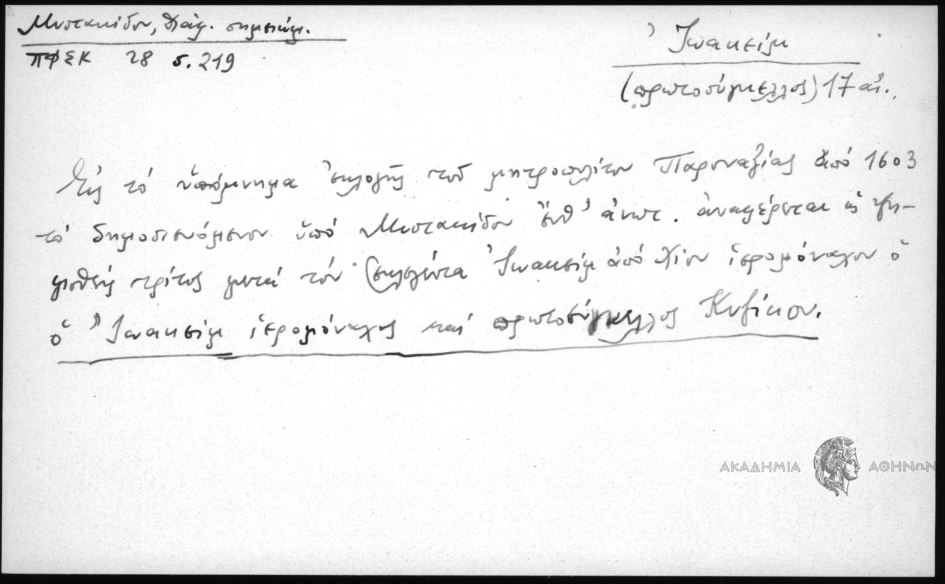 Μυστακίδου, Διάφ. σημειώμ.
ΠΦΣΚ 28 σ. 219
Ἰωακεὶμ
(πρωτοσύγκελλος) 17 αἰ.
Εἰς τὸ ὑπόμνημα ἐκλογῆς τοῦ μητροπολίτου Παροναξίας ἀπὸ 1603
τὸ δημοσιευόμενον ὑπὸ Μυστακίδου ἔνθ' ἀνωτ. ἀναφέρεται ὡς ψη-
φισθεὶς τρίτος μετὰ τὸν ἐκλεγέντα Ἰωακεὶμ ἀπὸ Χίου ἱερομόναχον ὁ
ὁ Ἰωακεὶμ ἱερομόναχος καὶ πρωτοσύγκελλος Κυζίκου.
ΑΚΑΔΗΜΙΑ ΑΘΗΝΩΝ